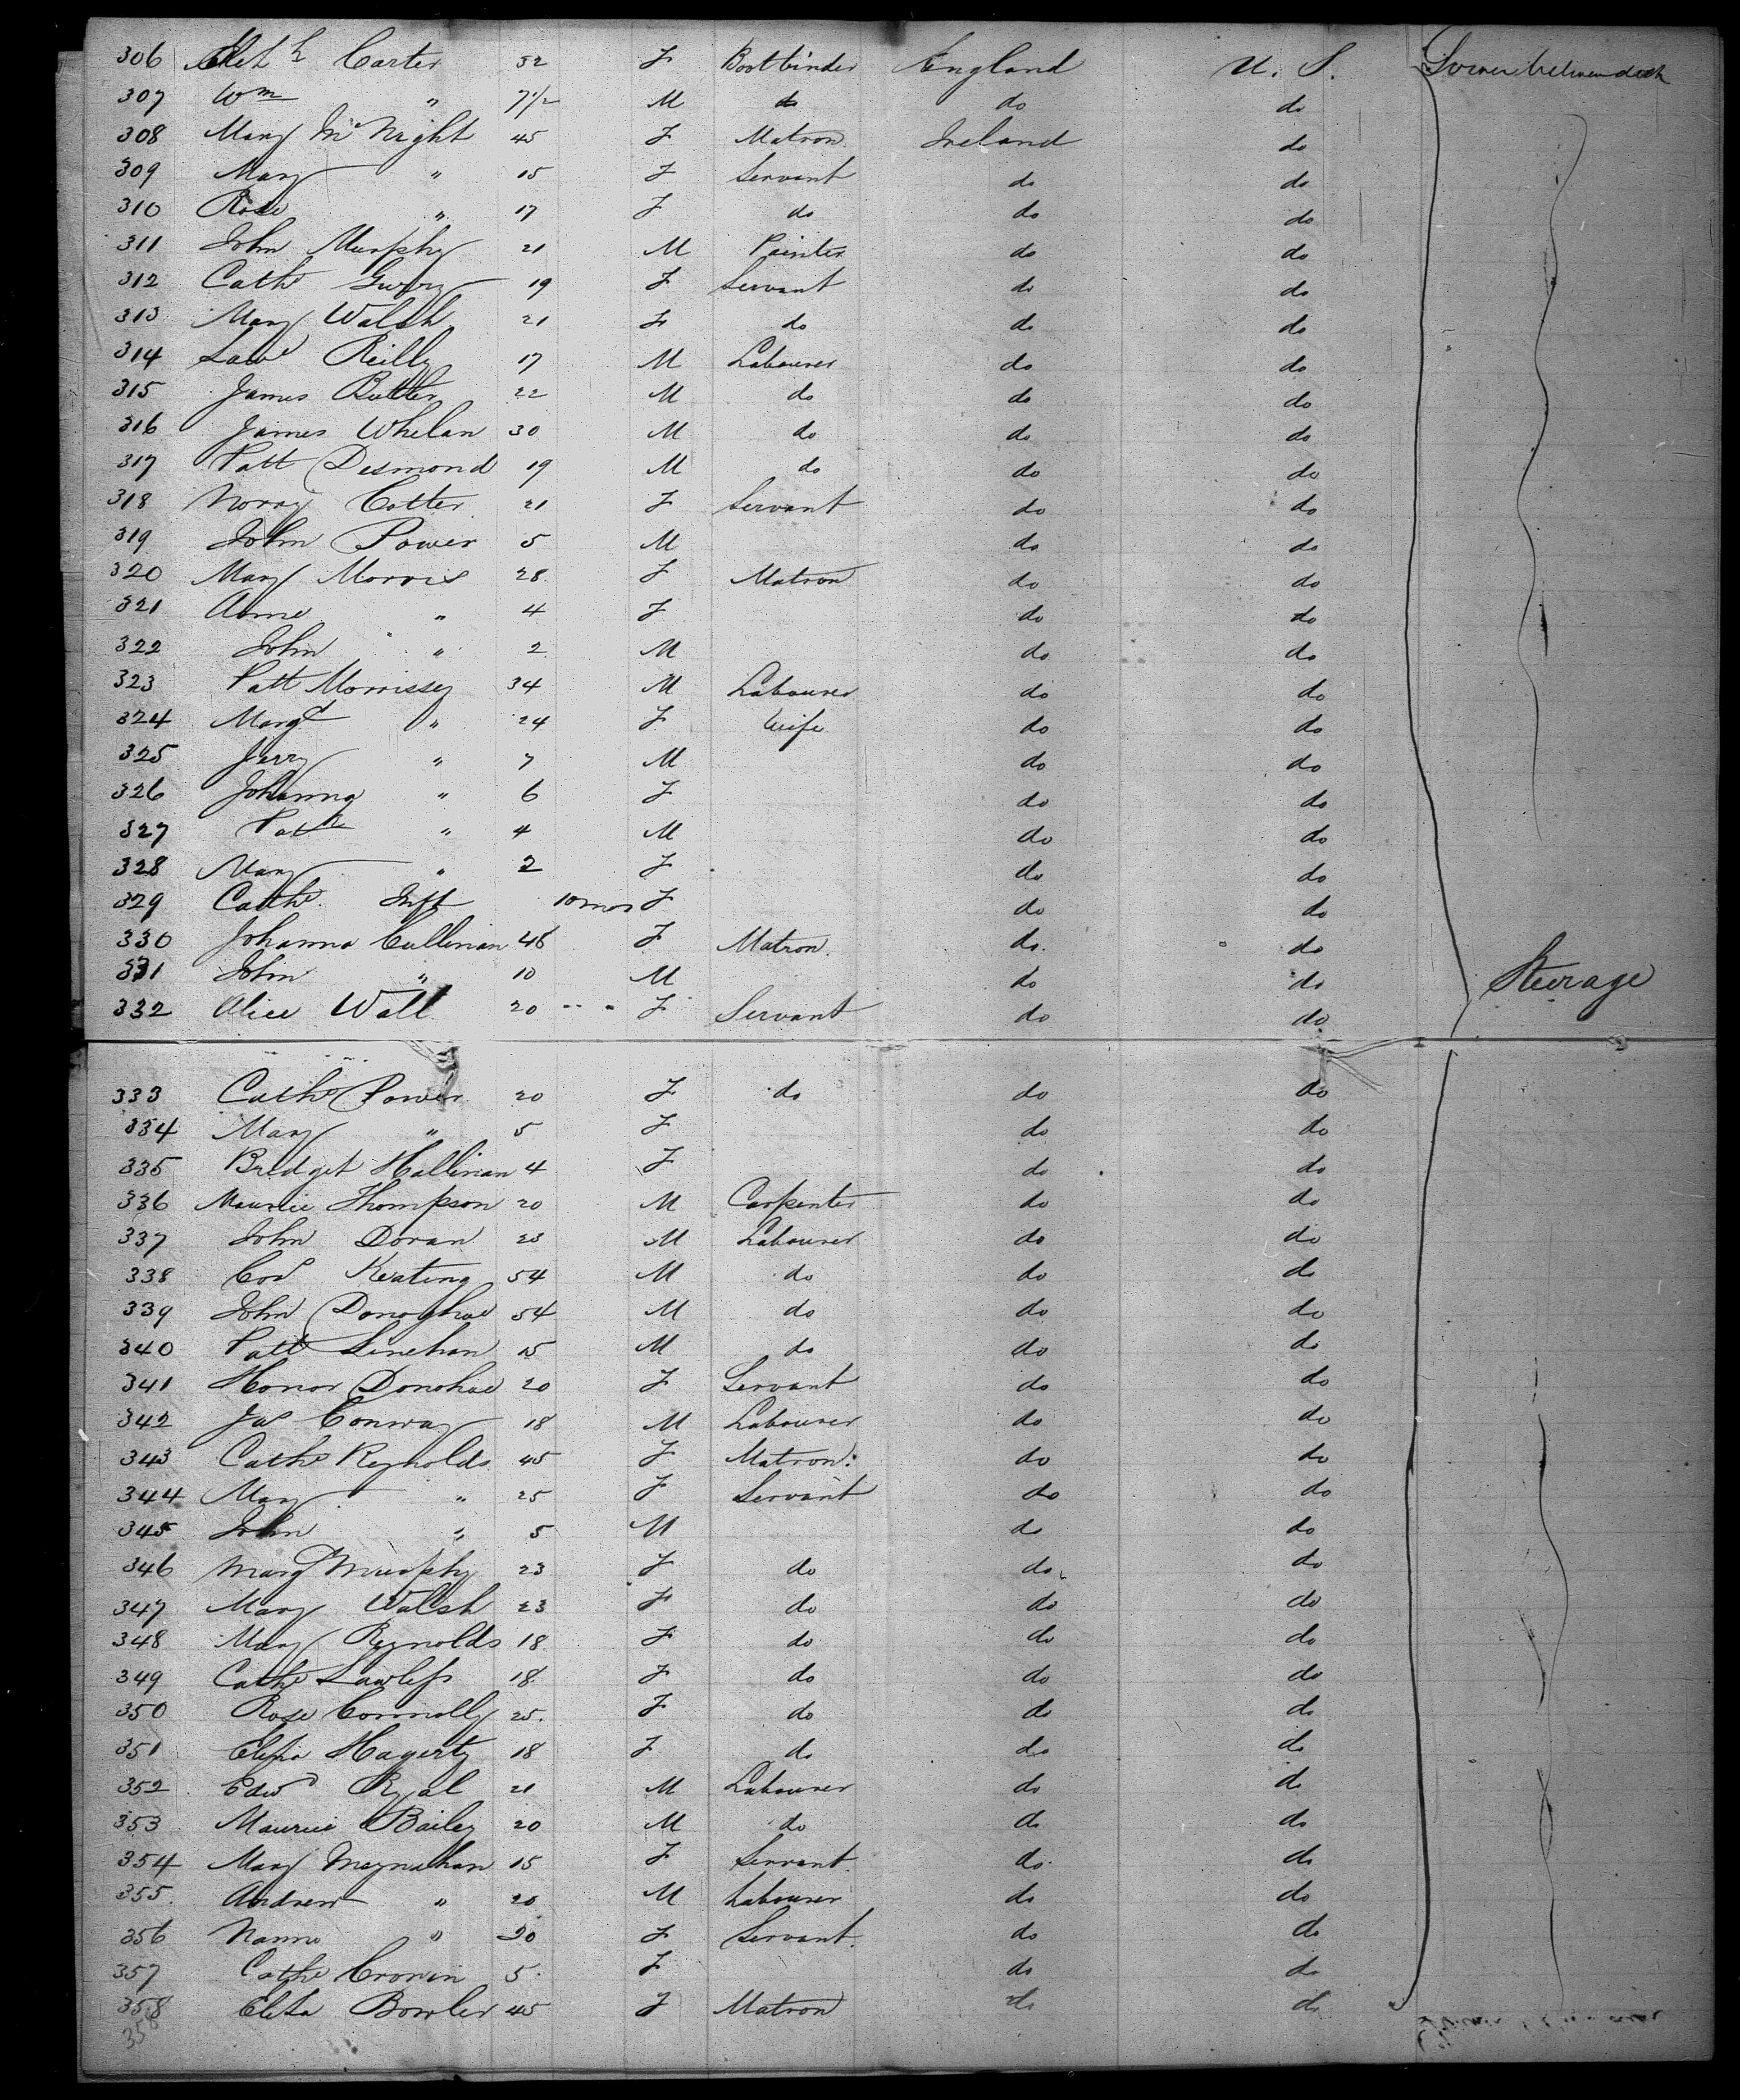 306 Eliz h Carter 32 F Bootbinder England U. S. Lower between deck
307 Wm " 7 1/2 M do do do
308 Mary McNight 45 F Matron Ireland do
309 Mary " 15 F Servant do do
310 Rose " 17 F do do do
311 John Murphy 21 M Painter do do
312 Cathe 19 F Servant do do
313 Mary Walsh 21 F do do do
314 Lawe Reilly 17 M Labourer do do
315 James Butler 22 M do do do
316 James Whelan 30 M do do do
317 Patt Desmond 19 M do do do
318 Norry Cotter 21 F Servant do do
319 John Power 5 M do do
320 Mary Morris 28 F Matron do do
321 Anne " 4 F do do
322 John " 2 M do do
323 Patt Morrissey 34 M Labourer do do
324 Margt " 24 F Wife do do
325 Jerry " 7 M do do
326 Johanna " 6 F do do
327 Patk " 4 M do do
328 Mary " 2 F do do
329 Cathe Inft 10 mos F do do
330 Johanna Cullinan 46 F Matron do do
331 John " 10 M do do Steerage
332 Alice Wall 20 F Servant do do
333 Cathe Power 20 F do do do
334 Mary " 5 F do do
335 Bridget Hallinan 4 F do do
336 Maurice Thompson 20 M Carpenter do do
337 John Doran 23 M Labourer do do
338 Cors Keating 54 M do do do
339 John Donoghue 54 M do do do
340 Patt Linehan 15 M do do do
341 Honor Donohue 20 F Servant do do
342 Jas Conway 18 M Labourer do do
343 Cathe Reynolds 45 F Matron do do
344 Mary " 25 F Servant do do
345 John " 5 M do do
346 Margt Murphy 23 F do do do
347 Mary Walsh 23 F do do do
348 Mary Reynolds 18 F do do do
349 Cathe Lawless 18 F do do do
350 Rose Connolly 25 F do do do
351 Eliza Hagerty 18 F do do do
352 Edwd Ryal 21 M Labourer do do
353 Maurice Bailey 20 M do do do
354 Mary Moynahan 15 F Servant do do
355 Andrew " 20 M Labourer do do
356 Nanno " 20 F Servant do do
357 Cathe Cronin 5 F do do
358 Eliza Bowler 45 F Matron do do
358